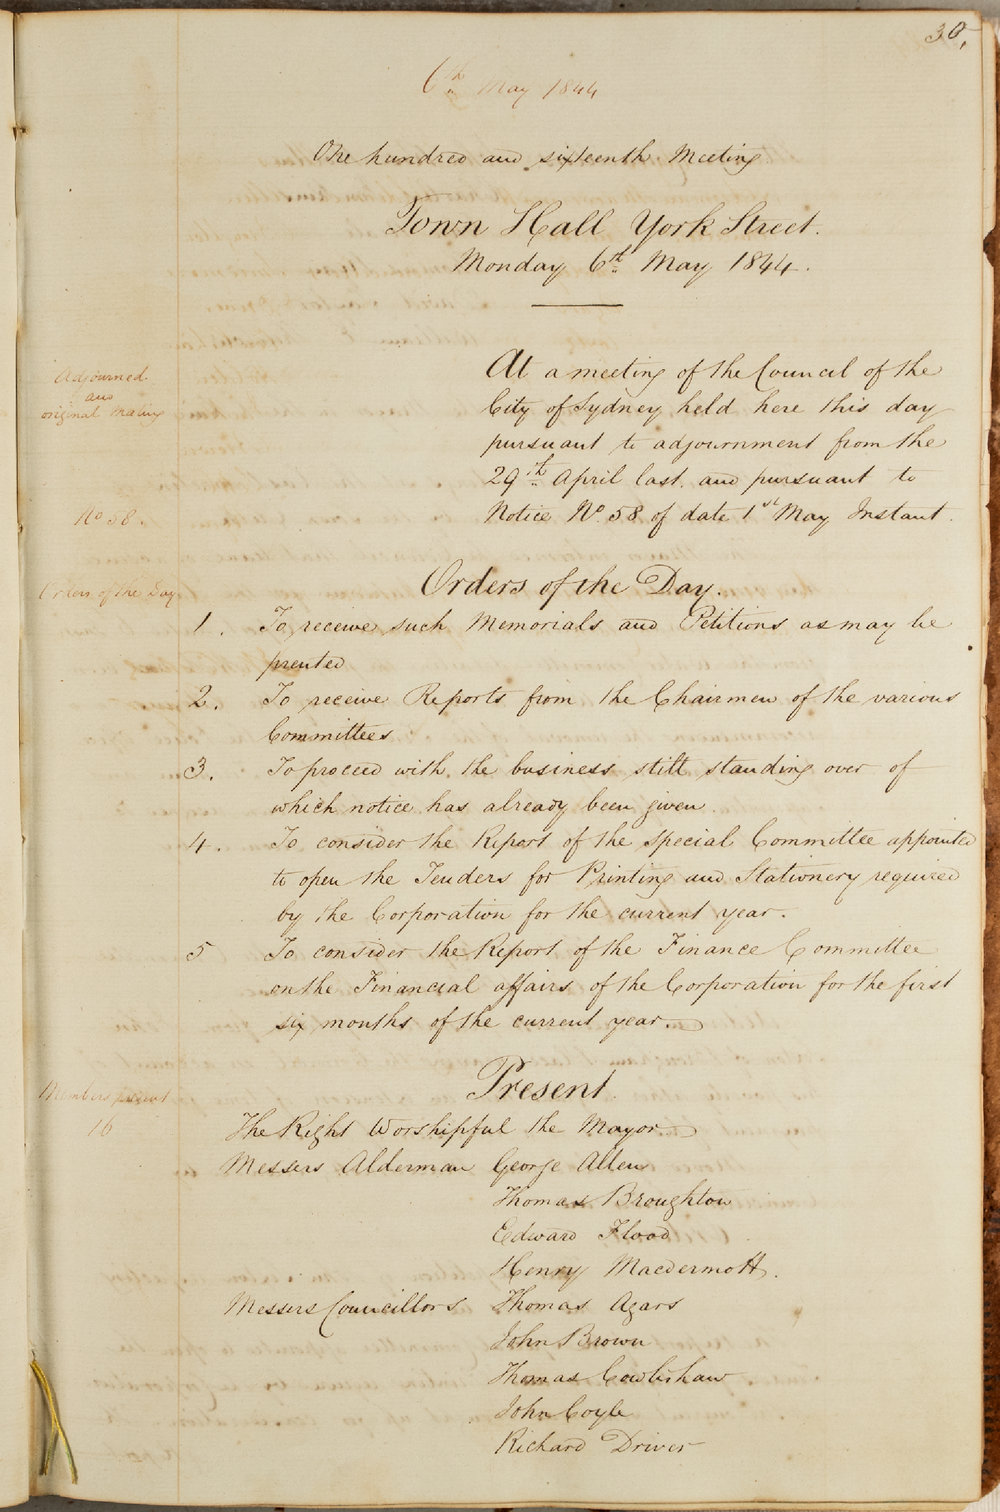 30,
6th May 1844
One hundred and sixteenth Meeting
Town Hall York Street.
Monday 6th May 1844.
Adjourned
and
original meeting
At a meeting of the Council of the
City of Sydney held here this day
pursuant to adjournment from the
29th April last, and pursuant to
No 58.
Notice No. 58 of date 1st May Instant.
Orders of the Day
Orders of the Day.
1. To receive such Memorials and Petitions as may be
prented
2. To receive Reports from the Chairmen of the various
Committees
3. To proceed with the business still standing over of
which notice has already been given
4. To consider the Report of the Special Committee appointed
to open the Tenders for Printing and Stationery required
by the Corporation for the current year.
5 To consider the Report of the Finance Committee
on the Financial affairs of the Corporation for the first
six months of the current year.
Members present
16
Present.
The Right Worshipful the Mayor
Messers Alderman George Allen
Thomas Broughton
Edward Flood
Henry Macdermott.
Messers Councillors Thomas Agars
John Brown
Thomas Cowlishaw
John Coyle
Richard Driver